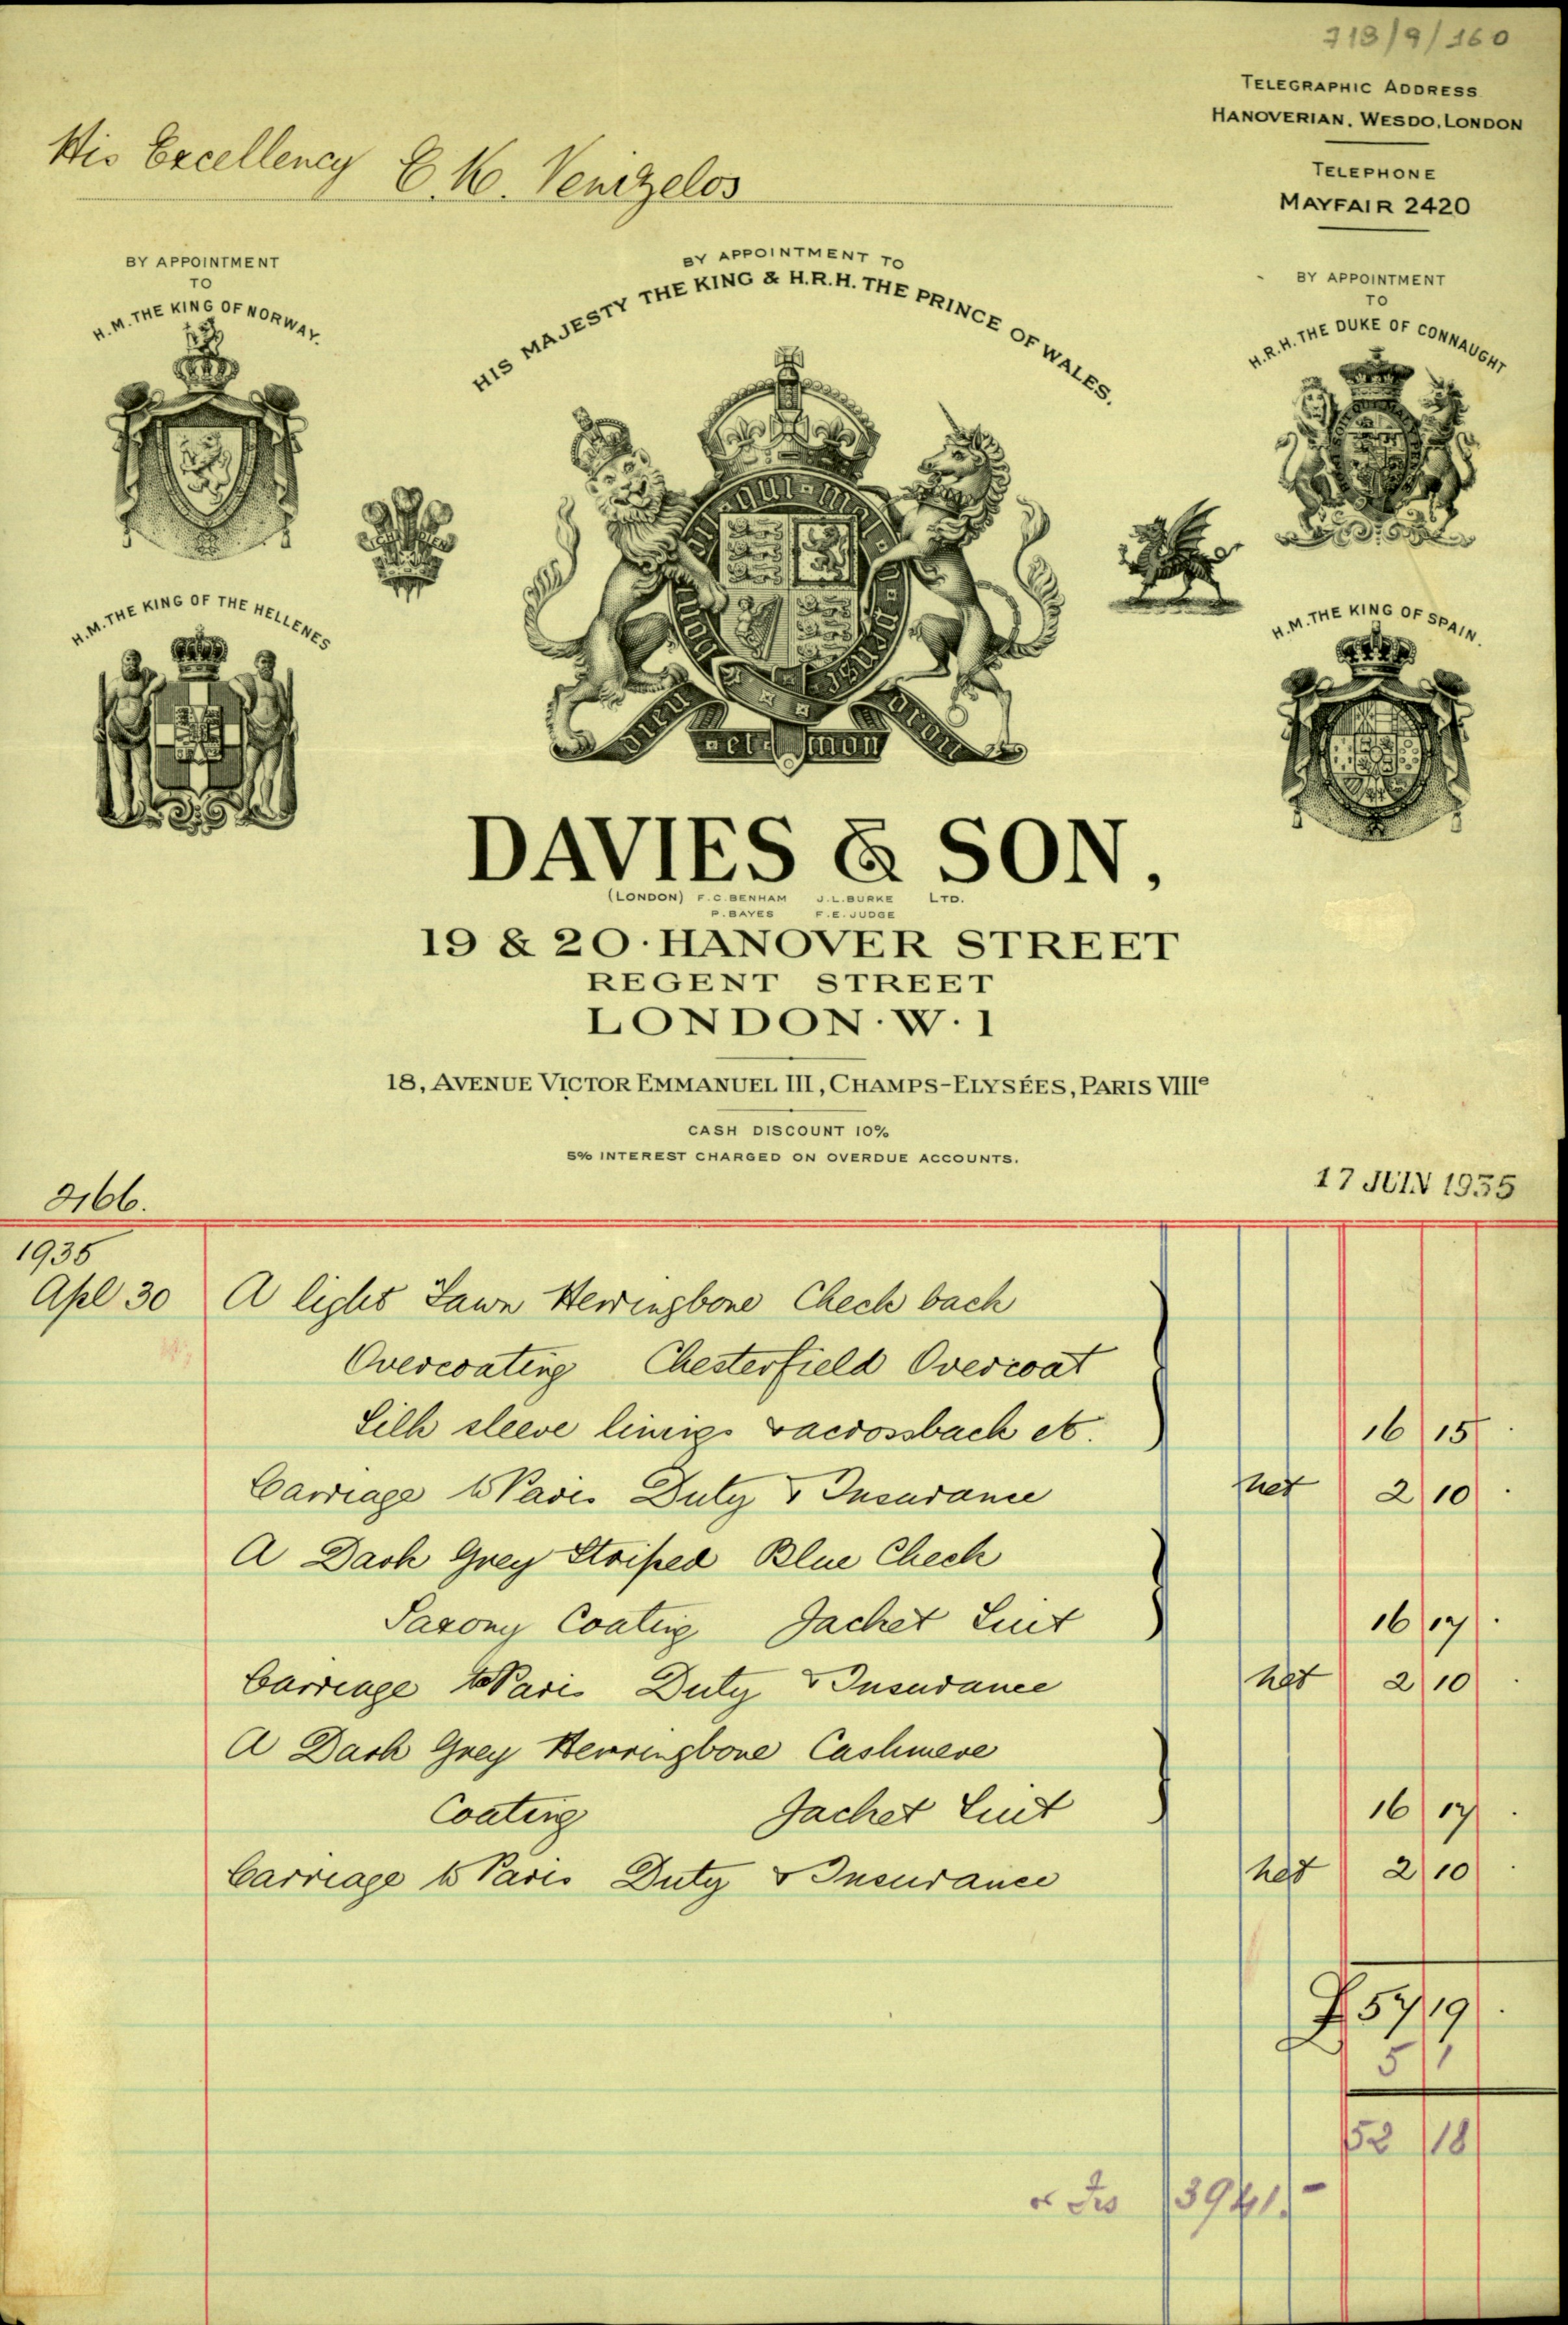 718/9/160
TELEGRAPHIC ADDRESS
HANOVERIAN, WESDO, LONDON
TELEPHONE
MAYFAIR 2420
His Excellency E. K. Venizelos
BY APPOINTMENT
TO
H.M. THE KING OF NORWAY.
BY APPOINTMENT TO
HIS MAJESTY THE KING & H.R.H. THE PRINCE OF WALES.
BY APPOINTMENT
TO
H.R.H. THE DUKE OF CONNAUGHT
H.M. THE KING OF THE HELLENES
H.M. THE KING OF SPAIN.
ICH DIEN
honi soit qui mal
dieu et mon droit
DAVIES & SON,
(LONDON) F.C. BENHAM J.L. BURKE LTD.
P. BAYES F.E. JUDGE
19 & 20 · HANOVER STREET
REGENT STREET
LONDON · W · 1
18, AVENUE VICTOR EMMANUEL III, CHAMPS-ELYSÉES, PARIS VIIIe
CASH DISCOUNT 10%
5% INTEREST CHARGED ON OVERDUE ACCOUNTS.
17 JUIN 1935
2166.
1935
Apl 30 A light Fawn Herringbone Check back
Overcoating Chesterfield Overcoat
Silk sleeve linings & acrossback etc. 16 15 .
Carriage to Paris Duty & Insurance net 2 10 .
A Dark Grey Striped Blue Check
Saxony Coating Jacket Suit 16 17 .
Carriage to Paris Duty & Insurance net 2 10 .
A Dark Grey Herringbone Cashmere
Coating Jacket Suit 16 17 .
Carriage to Paris Duty & Insurance net 2 10 .
£ 57 19 .
5 1
52 18
or Frs 3941.-